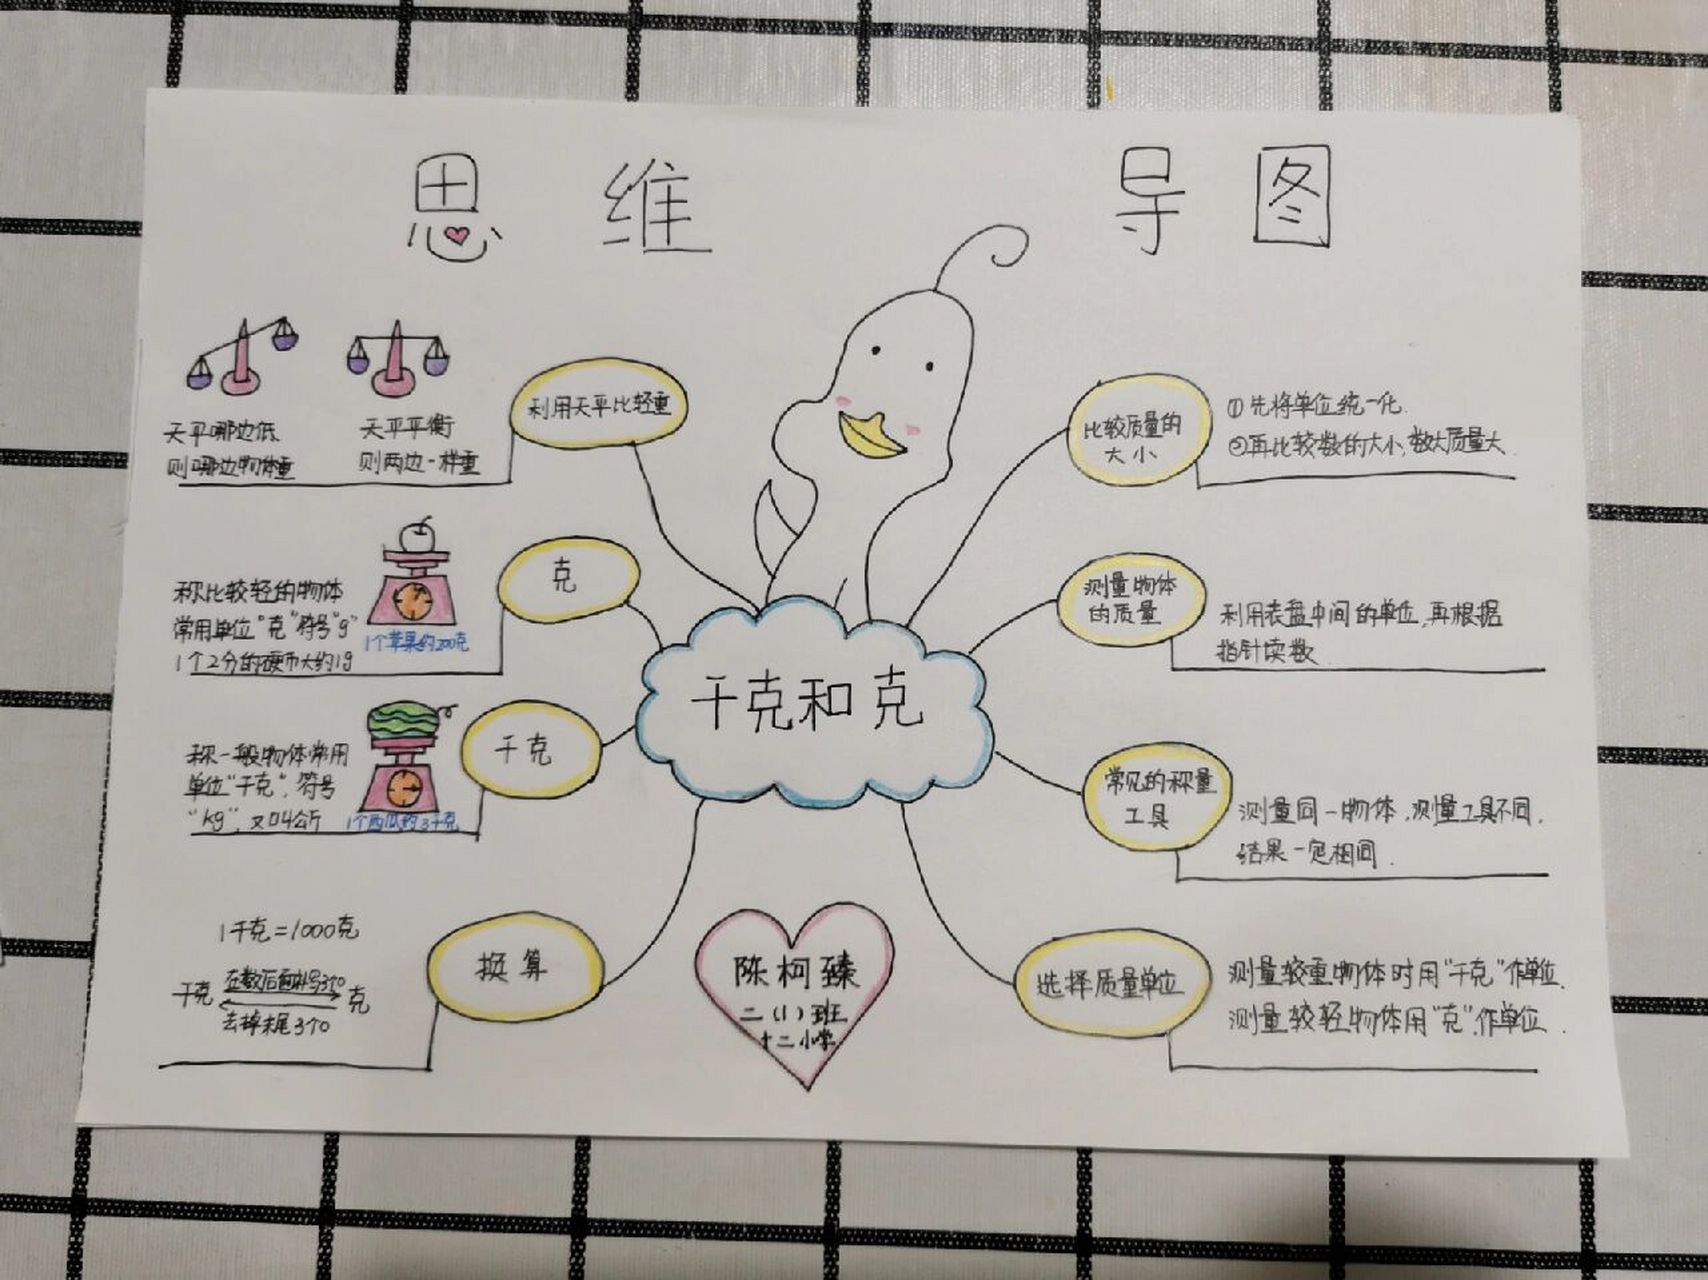 思维导图
利用天平比轻重
天平哪边低
则哪边物体重
天平平衡
则两边一样重
克
称比较轻的物体
常用单位"克"符号"g"
1个2分的硬币大约1g
1个苹果约200克
千克
称一般物体常用
单位"千克",符号
"kg",又叫公斤
1个西瓜约3千克
换算
1千克=1000克
千克 在数后面补写3个0 克
去掉末尾3个0
千克和克
陈柯臻
二(1)班
十二小学
比较质量的
大小
①先将单位统一化.
②再比较数的大小,数大质量大.
测量物体
的质量
利用表盘中间的单位,再根据
指针读数
常见的称量
工具
测量同一物体,测量工具不同,
结果一定相同.
选择质量单位
测量较重物体时用"千克"作单位.
测量较轻物体用"克"作单位.